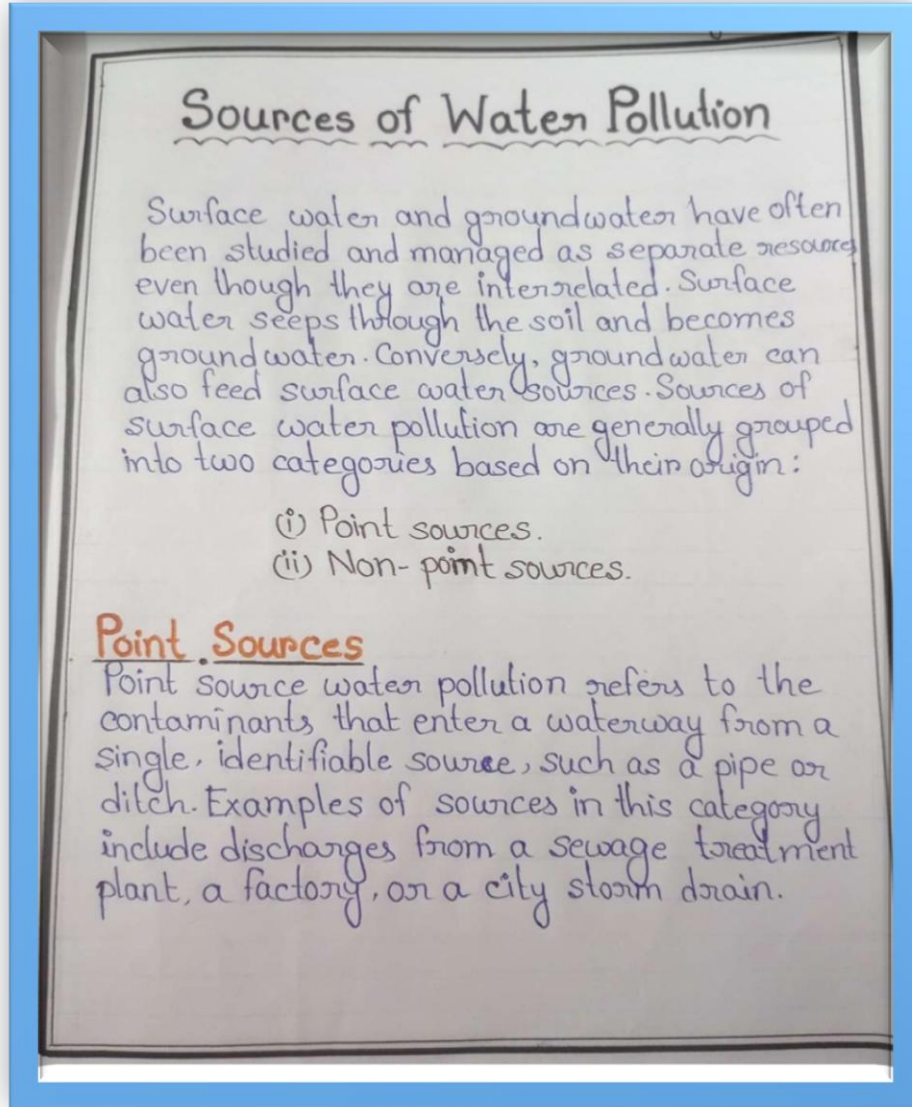 Sources of Water Pollution
Surface water and groundwater have often
been studied and managed as separate resources
even though they are interrelated. Surface
water seeps through the soil and becomes
groundwater. Conversely, groundwater can
also feed surface water sources. Sources of
surface water pollution are generally grouped
into two categories based on their origin:
(i) Point sources.
(ii) Non-point sources.
Point Sources
Point source water pollution refers to the
contaminants that enter a waterway from a
single, identifiable source, such as a pipe or
ditch. Examples of sources in this category
include discharges from a sewage treatment
plant, a factory, or a city storm drain.